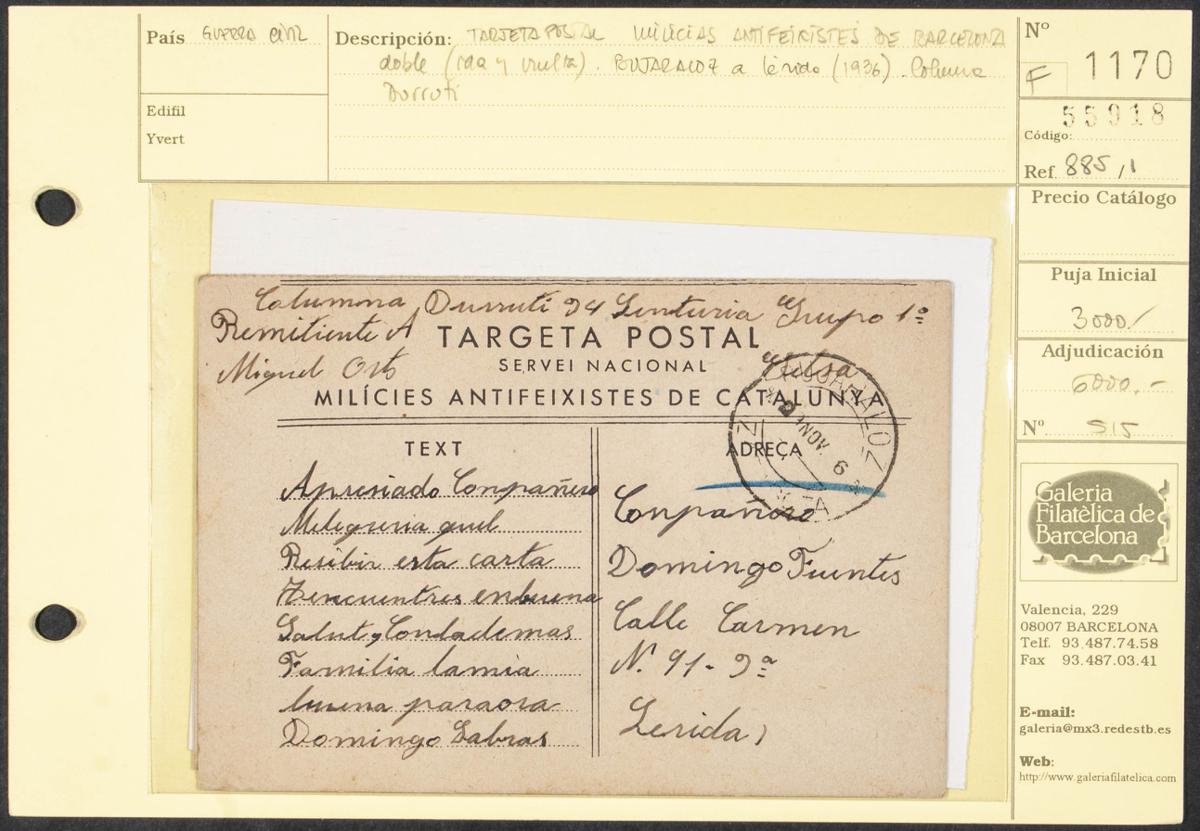 País GUERRA CIVIL
Descripción: TARJETA POSTAL MILÍCIAS ANTIFEIXISTES DE BARCELONA
doble (ida y vuelta). BUJARALOZ a Lérida (1936). Columna
Durruti
Edifil
Yvert
Nº
F 1170
55918
Código:
Ref. 885/1
Precio Catálogo
Puja Inicial
3000/
Adjudicación
6000.-
Nº 515
Galeria
Filatèlica de
Barcelona
Valencia, 229
08007 BARCELONA
Telf. 93 487.74.58
Fax 93.487.03.41
E-mail:
galeria@mx3.redestb.es
Web:
http://www.galeriafilatelica.com
Columna Durruti 94 Senturia Grupo 1º
Remitiente A
Miguel Orts
TARGETA POSTAL
SERVEI NACIONAL
MILÍCIES ANTIFEIXISTES DE CATALUNYA
BUJARALOZ
NOV. 6
TEXT
Apresiado Conpañero
Melegreria quel
Resibir esta carta
Tencuentres enbuena
Salut y Contademas
Familia lamia
buena paraora
Domingo Labras
ADREÇA
Conpañero
Domingo Fuentes
Calle Carmen
N. 91-9ª
Lerida